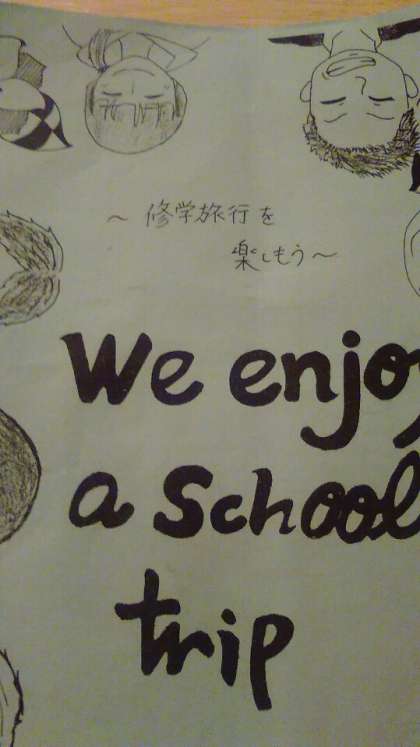 ～修学旅行を
楽しもう～
We enjoy
a school
trip